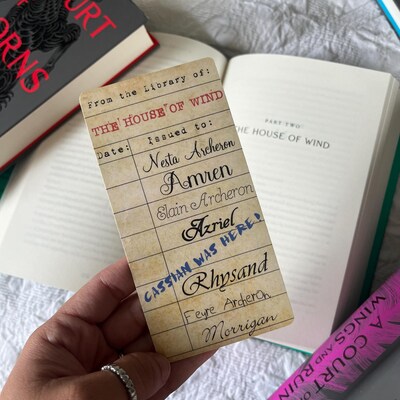 COURT
ORNS
From the Library of:
THE HOUSE OF WIND
Date: Issued to:
Nesta Archeron
Amren
Elain Archeron
Azriel
CASSIAN WAS HERE!
Rhysand
Feyre Archeron
Morrigan
PART TWO
THE HOUSE OF WIND
A COURT OF
WINGS AND RUIN